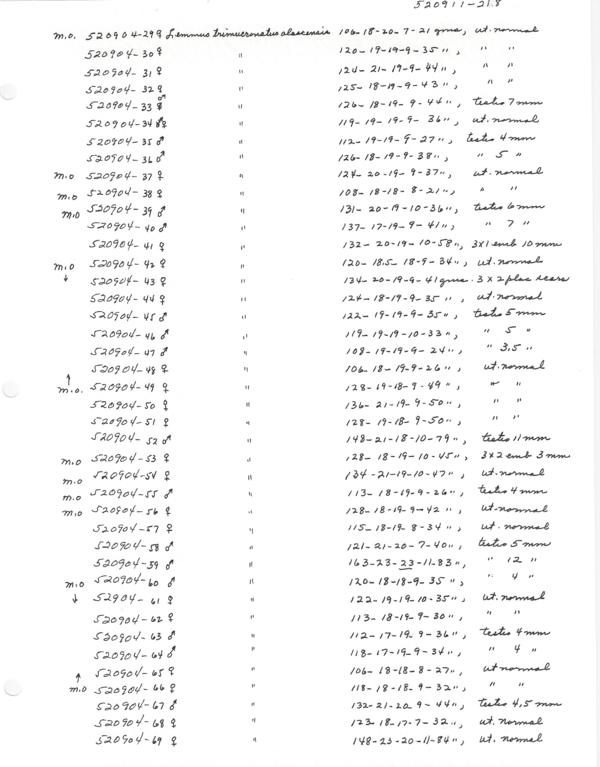 520911-21.8
m.o. 520904-29♀ Lemmus trimucronatus alascensis 106-18-20-7-21 gms, ut. normal
520904-30♀ " 120-19-19-9-35 ", " "
520904-31♀ " 124-21-19-9-44 ", " "
520904-32♀ " 125-18-19-9-43 ", " "
520904-33♂ " 126-18-19-9-44 ", testis 7 mm
520904-34♀ " 119-19-19-9-36 ", ut. normal
520904-35♂ " 112-19-19-9-27 ", testis 4 mm
520904-36♂ " 126-18-19-9-38 ", " 5 "
m.o 520904-37♀ " 124-20-19-9-37 ", ut. normal
m.o 520904-38♀ " 108-18-18-8-21 ", " "
m.o 520904-39♂ " 131-20-19-10-36 ", testis 6 mm
520904-40♂ " 137-17-19-9-41 ", " 7 "
520904-41♀ " 132-20-19-10-58 ", 3x1 emb 10 mm
m.o 520904-42♀ " 120-18.5-18-9-34 ", ut. normal
↓ 520904-43♀ " 134-20-19-9-41 gms. 3x2 plac scars
520904-44♀ " 124-18-19-9-35 ", ut. normal
520904-45♂ " 122-19-19-9-35 ", testis 5 mm
520904-46♂ " 119-19-19-10-33 ", " 5 "
520904-47♂ " 108-19-19-9-24 ", " 3.5 "
520904-48♀ " 106-18-19-9-26 ", ut. normal
↑ m.o. 520904-49♀ " 128-19-18-9-49 ", " "
520904-50♀ " 136-21-19-9-50 ", " "
520904-51♀ " 128-19-18-9-50 ", " "
520904-52♂ " 148-21-18-10-79 ", testis 11 mm
m.o 520904-53♀ " 128-18-19-10-45 ", 3x2 emb 3 mm
m.o 520904-54♀ " 134-21-19-10-47 ", ut. normal
m.o 520904-55♂ " 113-18-19-9-26 ", testis 4 mm
m.o 520904-56♀ " 128-18-19-9-42 ", ut. normal
520904-57♀ " 115-18-19-8-34 ", ut. normal
520904-58♂ " 121-21-20-7-40 ", testis 5 mm
520904-59♂ " 163-23-23-11-83 ", " 12 "
m.o 520904-60♂ " 120-18-18-9-35 ", " 4 "
↓ 52904-61♀ " 122-19-19-10-35 ", ut. normal
520904-62♀ " 113-18-19-9-30 ", " "
520904-63♂ " 112-17-19-9-36 ", testis 4 mm
520904-64♂ " 118-17-19-9-34 ", " 4 "
↑ 520904-65♀ " 106-18-18-8-27 ", ut normal
m.o 520904-66♀ " 118-18-18-9-32 ", " "
520904-67♂ " 132-21-20-9-44 ", testis 4,5 mm
520904-68♀ " 123-18-17-7-32 ", ut. normal
520904-69♀ " 148-23-20-11-84 ", ut. normal